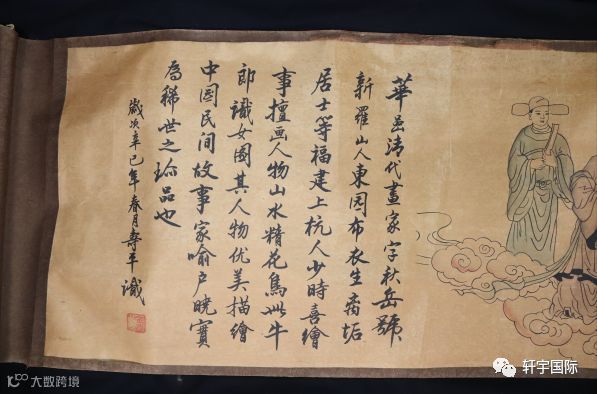 華嵒清代畫家字秋岳號
新羅山人東园布衣生离垢
居士等福建上杭人少時喜繪
事擅画人物山水精花鳥此牛
郎識女圖其人物优美描繪
中国民间故事家喻户晓實
為稀世之珎品也
歲次辛已年春月壽平識
大数跨境
轩宇国际